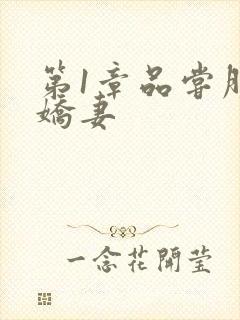 第1章品尝
娇妻
一念花開莹